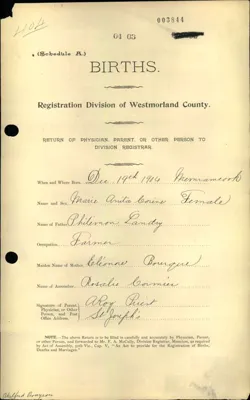 003944
6463
(Schedule A.)
BIRTHS.
Registration Division of Westmorland County.
RETURN OF PHYSICIAN, PARENT, OR OTHER PERSON TO
DIVISION REGISTRAR.
When and Where Born, Dec 19th 1904 Memramcook
Name and Sex, Marie Anita Corine Female
Name of Father, Philemon Landry
Occupation, Farmer
Maiden Name of Mother, Eleonore Bourque
Name of Accoucheur, Rosalie Cormier
Signature of Parent, Physician, or Other Person, and Post Office Address. A Roy Priest
St Josephs
NOTE.—The above Return is to be filled in carefully and accurately by Physician, Parent,
or other Person, and forwarded to Mr. F. A. McCully, Division Registrar, Moncton, as required
by Act of Assembly, 50th Vic., Cap. V, "An Act to provide for the Registration of Births,
Deaths and Marriages."